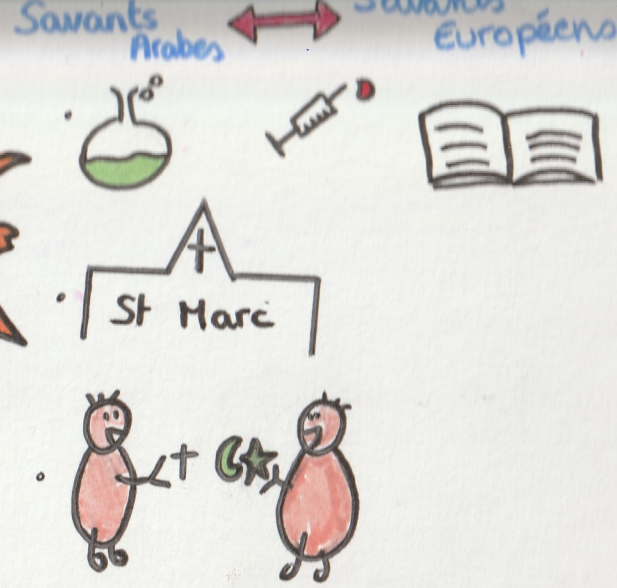 Savants
Arabes
Savants
Européens
St Marc